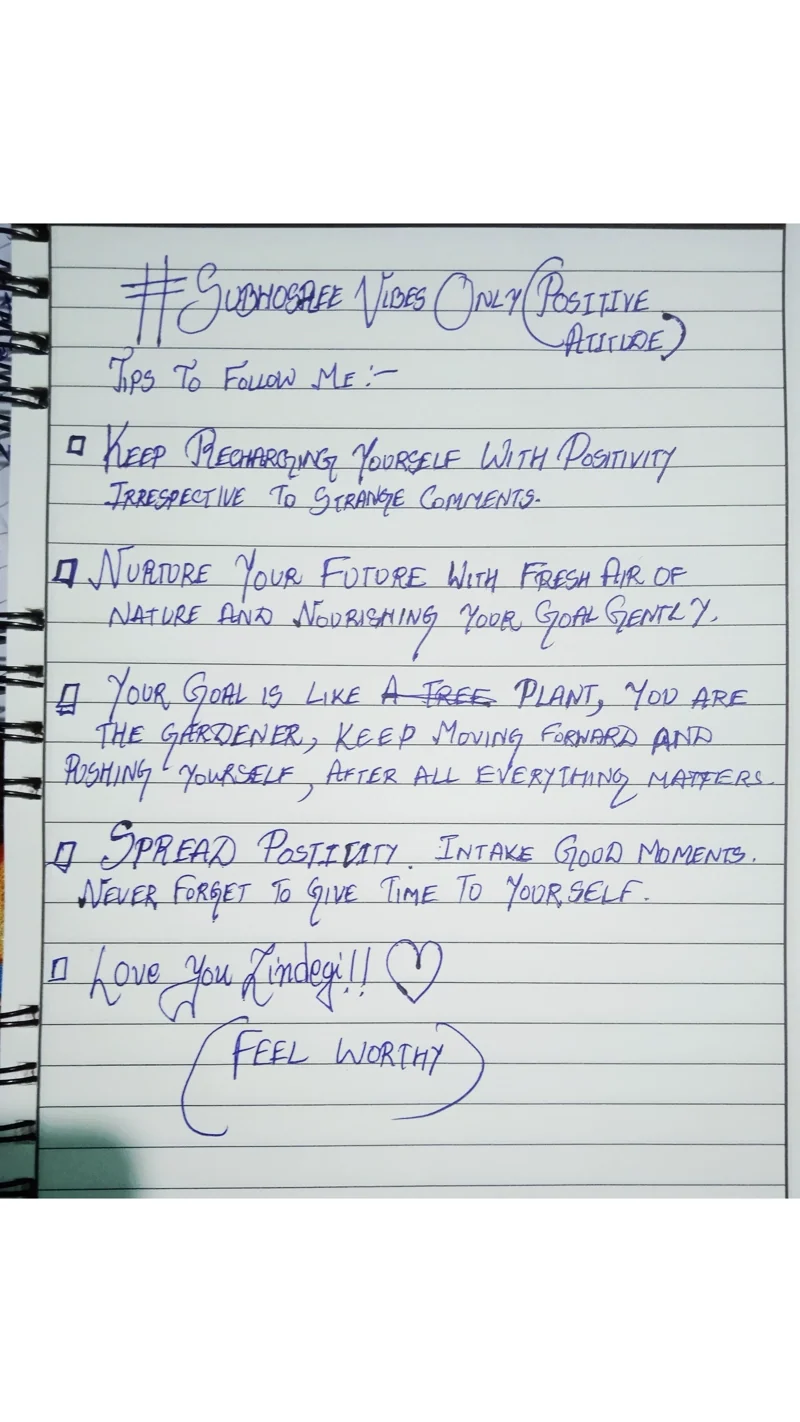 #SUBHOSREE VIBES ONLY (POSITIVE
ATITUDE)
TIPS TO FOLLOW ME :-
KEEP RECHARGING YOURSELF WITH POSITIVITY
IRRESPECTIVE TO STRANGE COMMENTS.
NURTURE YOUR FUTURE WITH FRESH AIR OF
NATURE AND NOURISHING YOUR GOAL GENTLY.
YOUR GOAL IS LIKE A TREE PLANT, YOU ARE
THE GARDENER, KEEP MOVING FORWARD AND
PUSHING YOURSELF, AFTER ALL EVERYTHING MATTERS.
SPREAD POSTIVITY. INTAKE GOOD MOMENTS.
NEVER FORGET TO GIVE TIME TO YOURSELF.
Love You Zindegi!! ♡
(FEEL WORTHY)